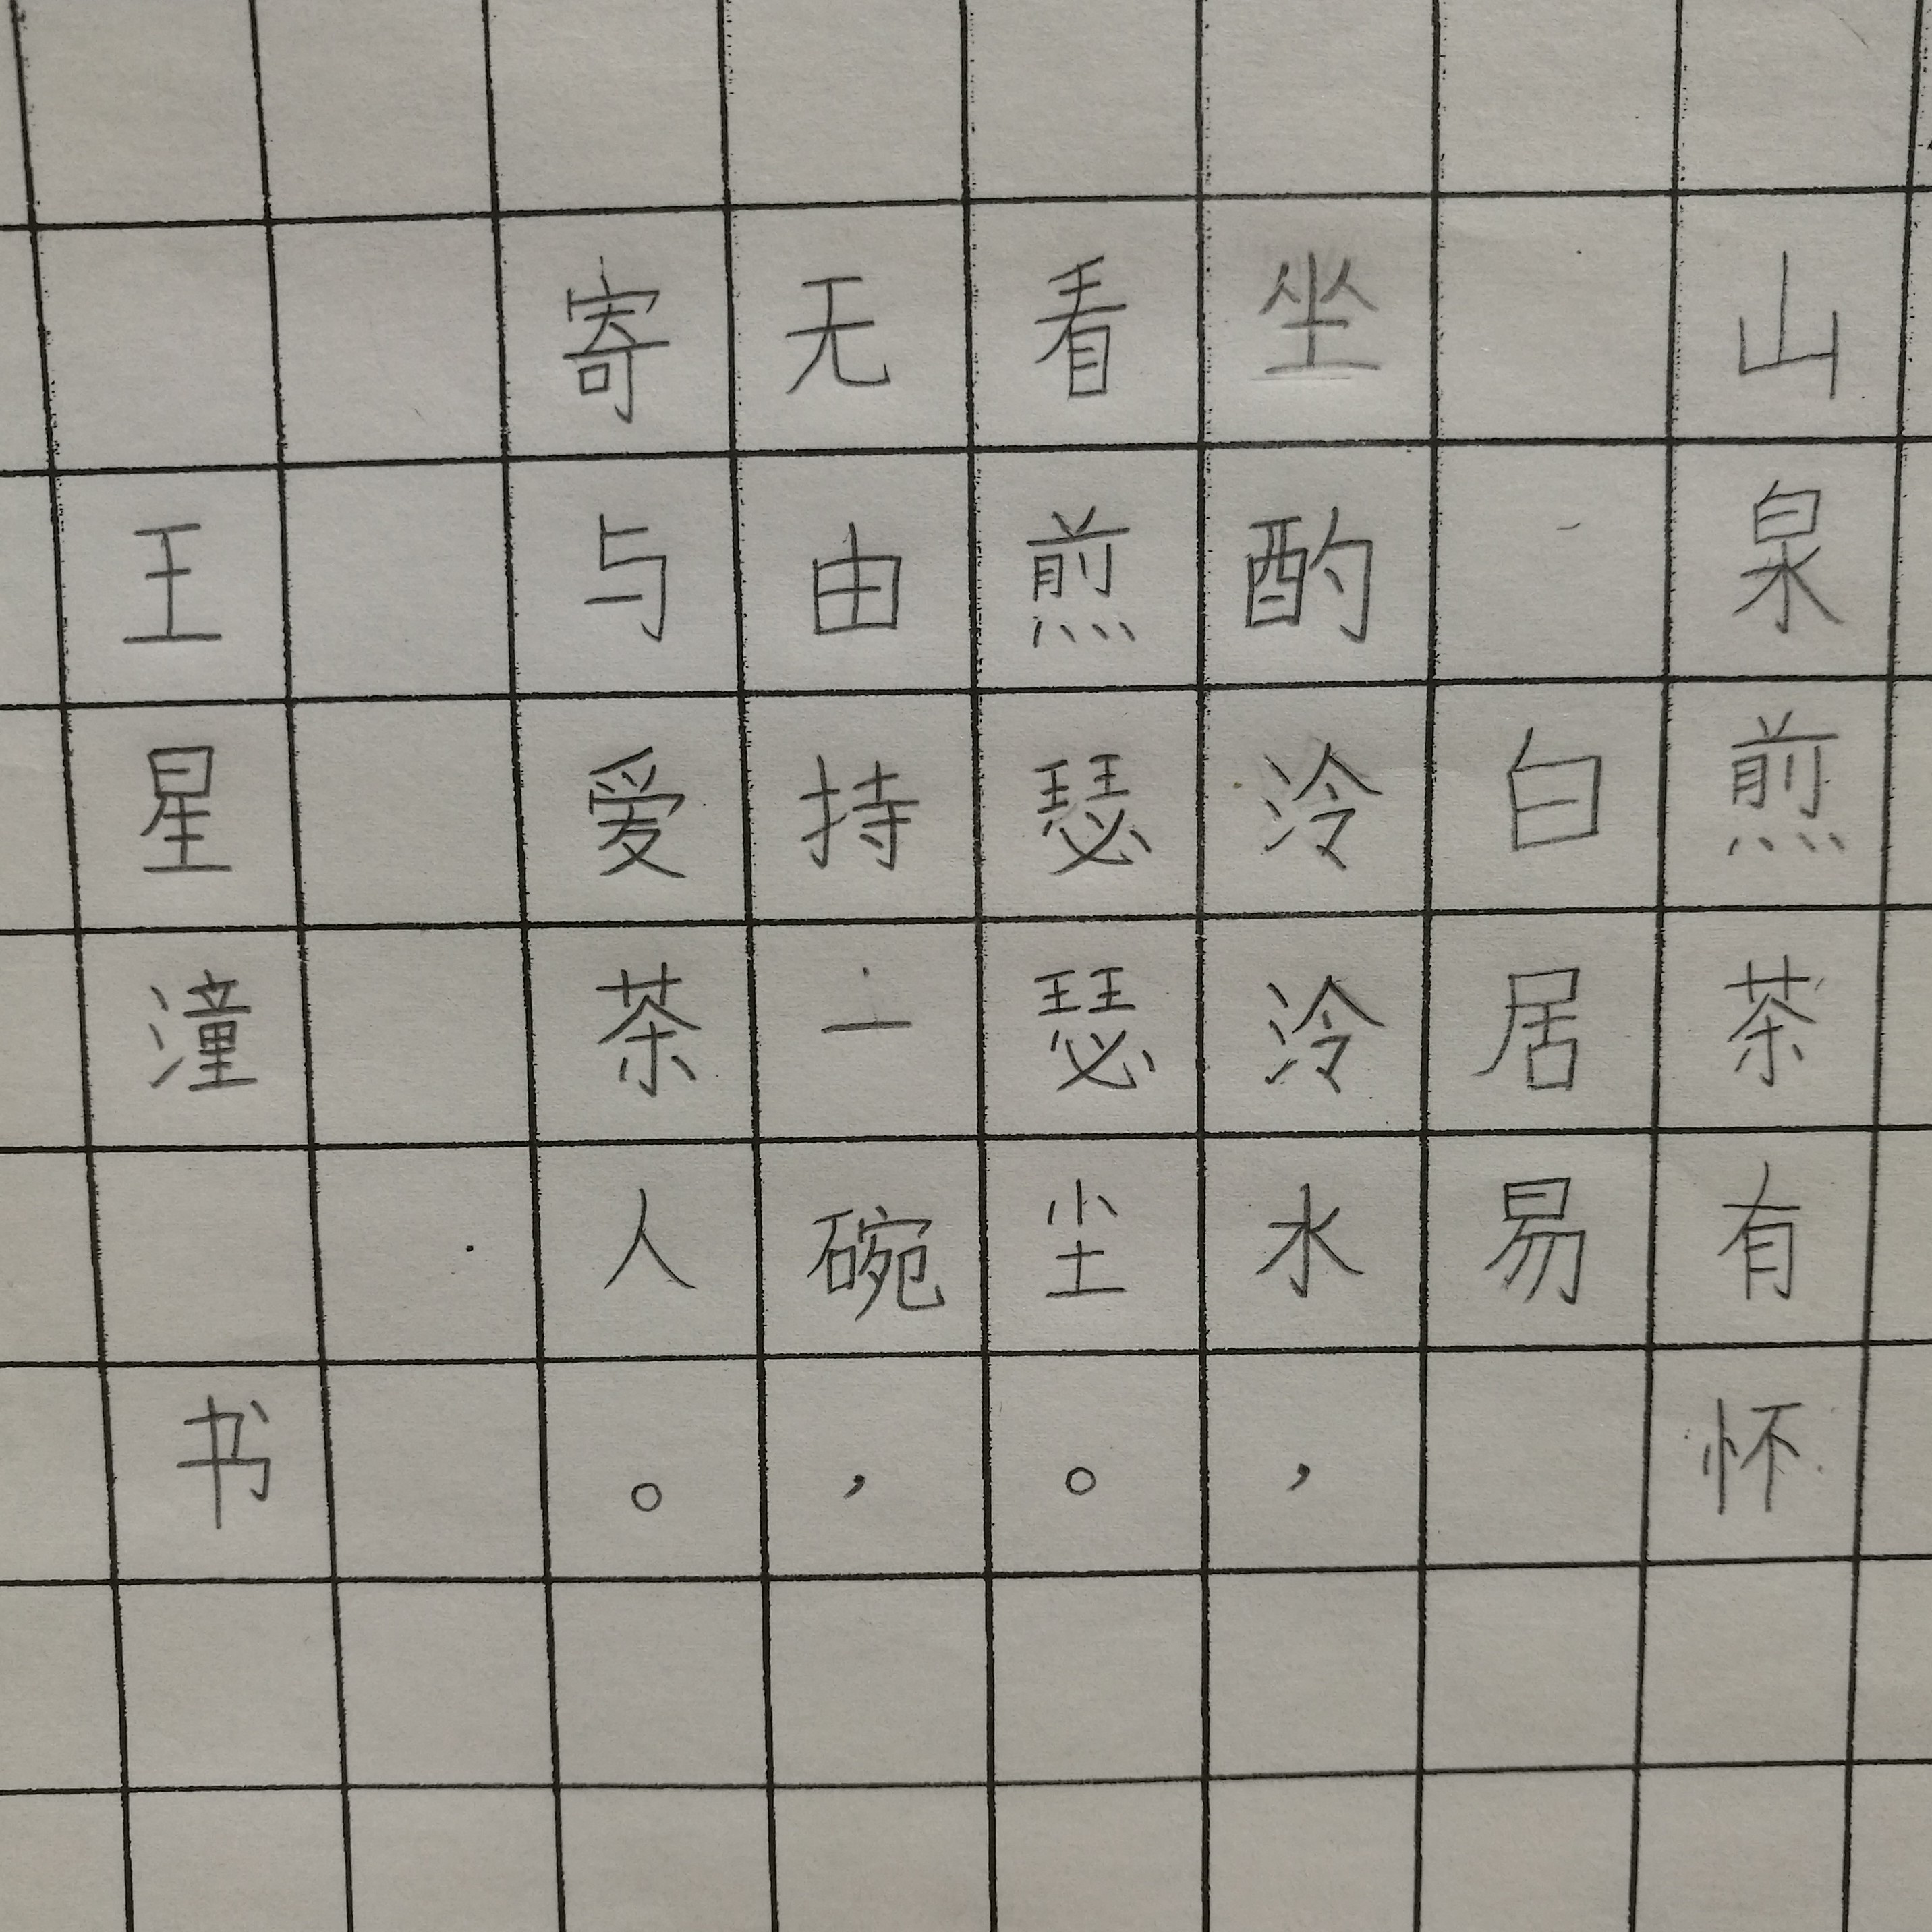 山泉煎茶有怀
白居易
坐酌泠泠水，
看煎瑟瑟尘。
无由持一碗，
寄与爱茶人。
王星潼 书